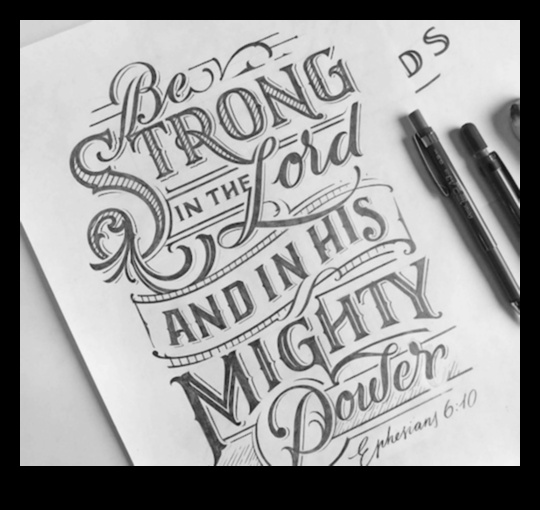 Be
STRONG
IN THE Lord
AND IN HIS
MIGHTY
Power
Ephesians 6:10
DS